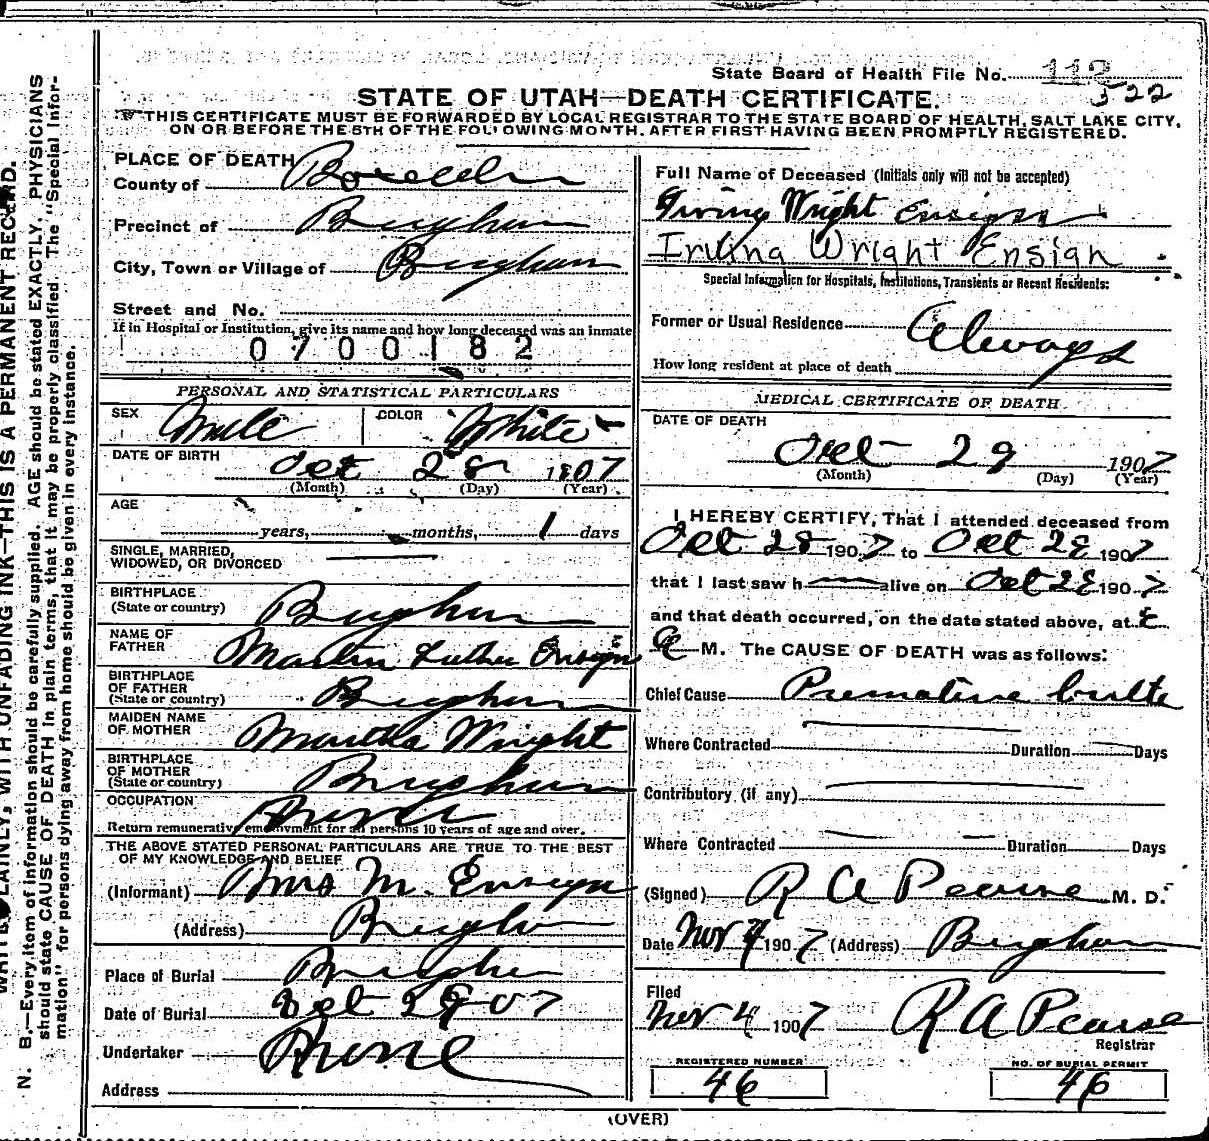 State Board of Health File No. 112
322
STATE OF UTAH—DEATH CERTIFICATE.
THIS CERTIFICATE MUST BE FORWARDED BY LOCAL REGISTRAR TO THE STATE BOARD OF HEALTH, SALT LAKE CITY,
ON OR BEFORE THE 5TH OF THE FOLLOWING MONTH, AFTER FIRST HAVING BEEN PROMPTLY REGISTERED.
PLACE OF DEATH
County of Boxelder
Precinct of Brigham
City, Town or Village of Brigham
Street and No.
If in Hospital or Institution, give its name and how long deceased was an inmate
0700182
PERSONAL AND STATISTICAL PARTICULARS
SEX Male COLOR White
DATE OF BIRTH Oct 28 1907
(Month) (Day) (Year)
AGE
years, months, 1 days
SINGLE, MARRIED,
WIDOWED, OR DIVORCED
BIRTHPLACE
(State or country) Brigham
NAME OF
FATHER Martin Luther Ensign
BIRTHPLACE
OF FATHER
(State or country) Brigham
MAIDEN NAME
OF MOTHER Martha Wright
BIRTHPLACE
OF MOTHER
(State or country) Brigham
OCCUPATION None
Return remunerative employment for all persons 10 years of age and over.
THE ABOVE STATED PERSONAL PARTICULARS ARE TRUE TO THE BEST
OF MY KNOWLEDGE AND BELIEF
(Informant) Mrs M. Ensign
(Address) Brigham
Place of Burial Brigham
Date of Burial Oct 29 07
Undertaker None
Address
Full Name of Deceased (Initials only will not be accepted)
Irving Wright Ensign
Irving Wright Ensign
Special Information for Hospitals, Institutions, Transients or Recent Residents:
Former or Usual Residence Always
How long resident at place of death
MEDICAL CERTIFICATE OF DEATH
DATE OF DEATH
Oct 29 1907
(Month) (Day) (Year)
I HEREBY CERTIFY, That I attended deceased from
Oct 28 1907 to Oct 28 1907
that I last saw h alive on Oct 28 1907
and that death occurred, on the date stated above, at
M. The CAUSE OF DEATH was as follows:
Chief Cause Premature birth
Where Contracted Duration Days
Contributory (if any)
Where Contracted Duration Days
(Signed) R A Pearse M. D.
Date Nov 4 1907 (Address) Brigham
Filed
Nov 4 1907 R A Pearse
Registrar
REGISTERED NUMBER NO. OF BURIAL PERMIT
46 46
(OVER)
WRITE PLAINLY, WITH UNFADING INK—THIS IS A PERMANENT RECORD.
N. B.—Every item of information should be carefully supplied. AGE should be stated EXACTLY, PHYSICIANS
should state CAUSE OF DEATH in plain terms, that it may be properly classified. The "Special Infor-
mation" for persons dying away from home should be given in every instance.